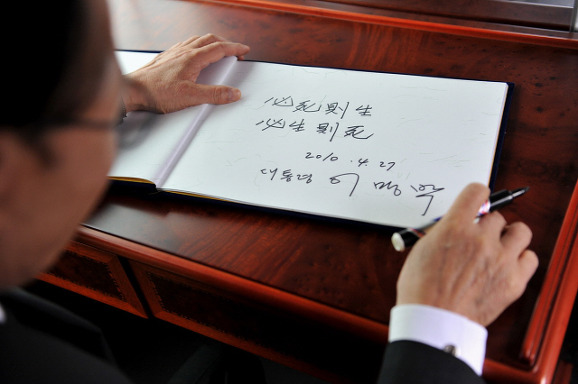 必死則生
必生則死
2010.4.27
대통령 이명박